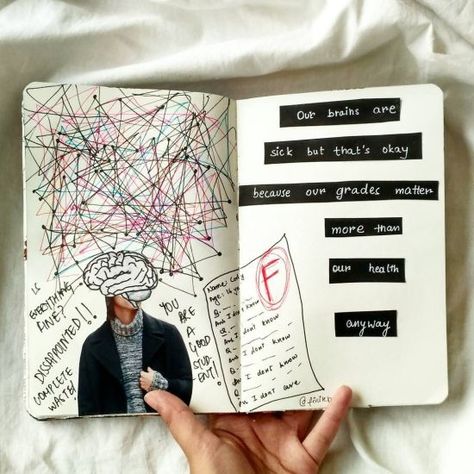 IS
EVERYTHING
FINE?
DISAPPOINTED!!
COMPLETE
WASTE!
YOU
ARE
A
GOOD
STUD
ENT!
Name:
Age:
F
Q -
Ans I don't know
Q -
Ans I don't know
Q -
Ans I don't know
Q -
Ans I dont know
Q -
Ans I don't care
Our brains are
sick but that's okay
because our grades matter
more than
our health
anyway